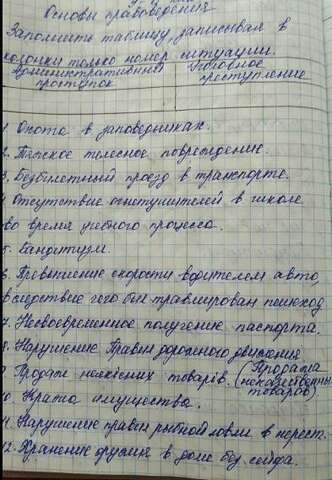 Основы правоведения
Заполнить таблицу, записывая в
колонки только номер ситуации.
Административный проступок
Уголовное преступление
1. Охота в заповедниках.
2. Тяжкое телесное повреждение.
3. Безбилетный проезд в транспорте.
4. Отсутствие огнетушителей в школе
во время учебного процесса.
5. Бандитизм.
6. Превышение скорости водителем авто,
вследствие чего был травмирован пешеход.
7. Несвоевременное получение паспорта.
8. Нарушение Правил дорожного движения
9. Продаж неякісних товарів. (Продажа некачественных товаров)
10. Кража имущества.
11. Нарушение правил рыбной ловли в нерест.
12. Хранение оружия в доме без сейфа.